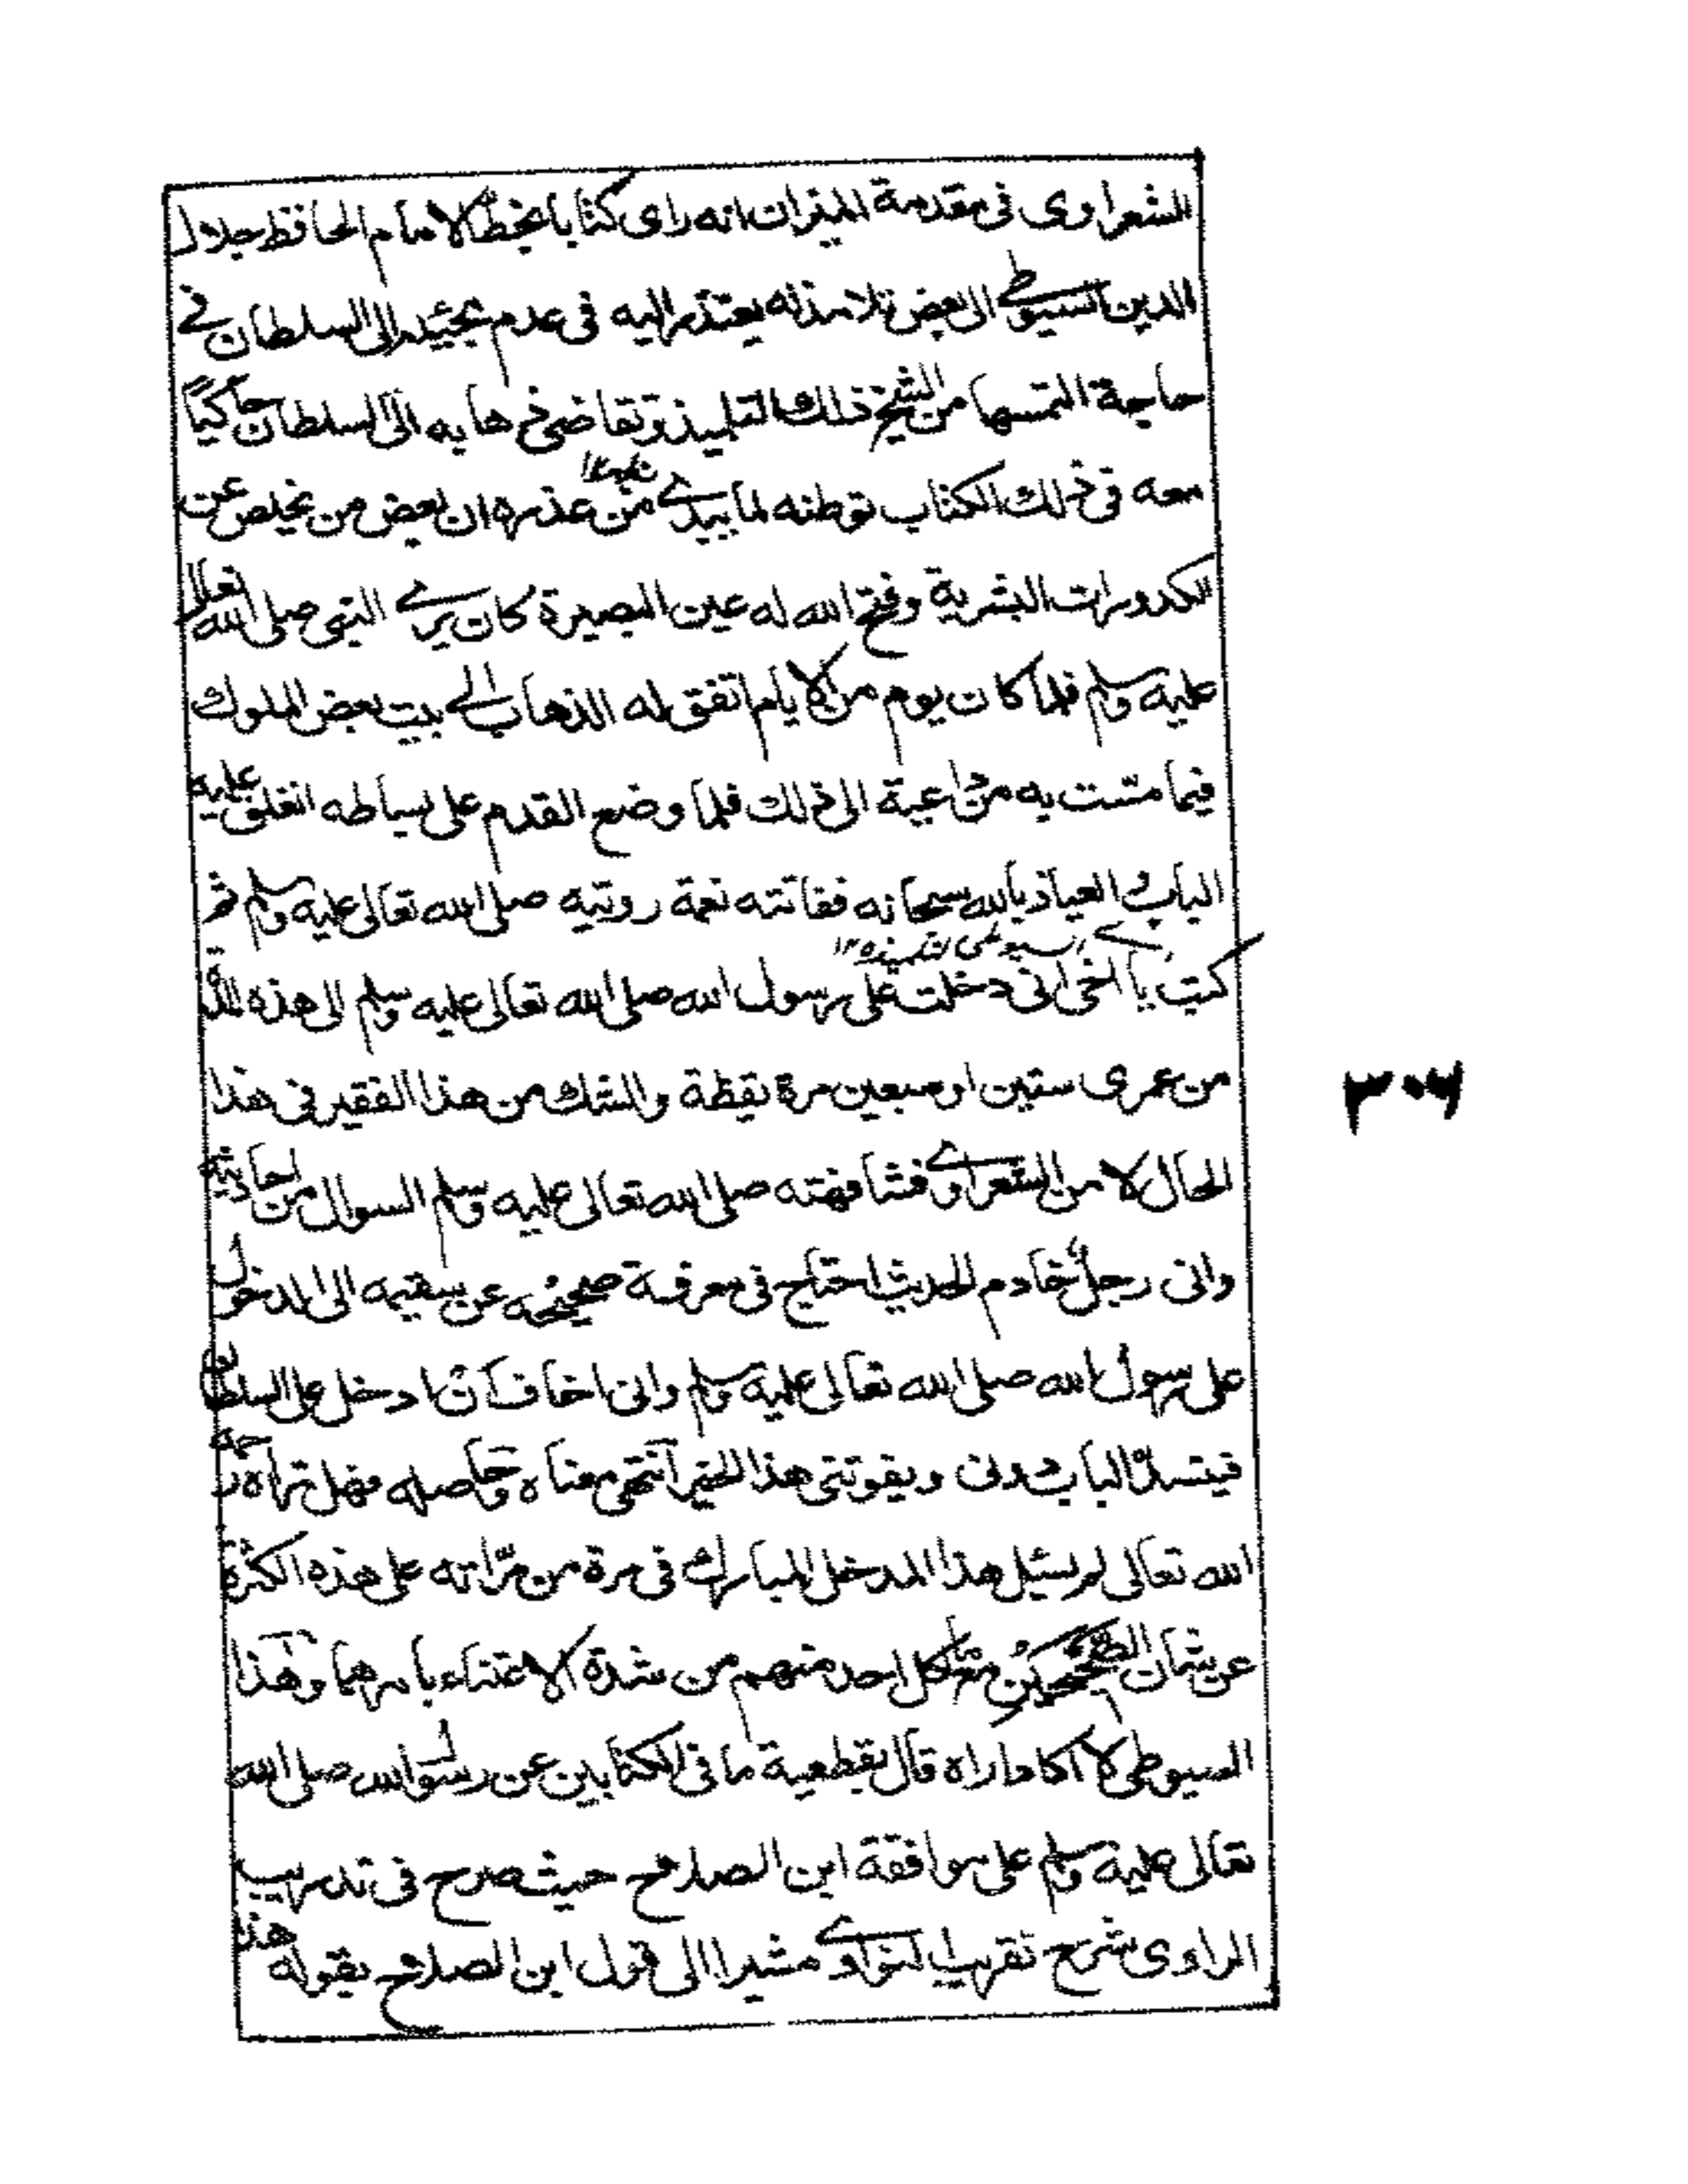 الشعراوى فى مقدمة الميزان انه راى كتابا بخط الامام الحافظ جلال
الدين السيوطى الى بعض تلامذته يعتذر اليه فى عدم مجيئه الى السلطان فى
حاجة التمسها من الشيخ ذلك التلميذ وتقاضى ذهابه الى السلطان حاكيًا
معه فى ذلك الكتاب توطئه لما يبدى من عذره ان بعض من يخلص عن
الكدورات البشرية وفتح الله له عين البصيرة كان يرى النبى صلى الله تعالى
عليه وسلم فلما كان يوم من الايام اتفق له الذهاب الى بيت بعض الملوك
فيما مسّت به من داعية الى ذلك فلما وضع القدم على بساطه انغلق عليه
الباب والعياذ بالله سبحانه ففاتته نعمة رويته صلى الله تعالى عليه وسلم ثم
السيوطى لتلميذه ١٢
كتب يا اخى انى دخلت على رسول الله صلى الله تعالى عليه وسلم الى هذه المدة
من عمرى ستين او سبعين مرة يقظة والشك من هذا الفقير فى هذا
الحال لا من الشعراوى فشافهته صلى الله تعالى عليه وسلم السوال من احاديثه
وانى رجل خادم الحديث احتاج فى معرفة صحيحه عن سقيمه الى الدخول
على رسول الله صلى الله تعالى عليه وسلم وانى اخاف ان ادخل على السلطان
فينسدّ الباب دونى ويفوتنى هذا الخير انتهى معناه وحاصله فهل تراه رحمه
الله تعالى لم يسئل هذا المدخل المبارك فى مرة من مرّاته على هذه الكثرة
عن شان الصحيحين مع ما لكل احد منهم من شدة الاعتناء بامرهما وهذا
السيوطى لا اكاد اراه قال بقطعية ما فى الكتابين عن رسول الله صلى الله
تعالى عليه وسلم على موافقة ابن الصلاح حيث صرح فى تدريب
الراوى شرح تقريب النواوى مشيرا الى قول ابن الصلاح بقوله هذا
٣٠٦